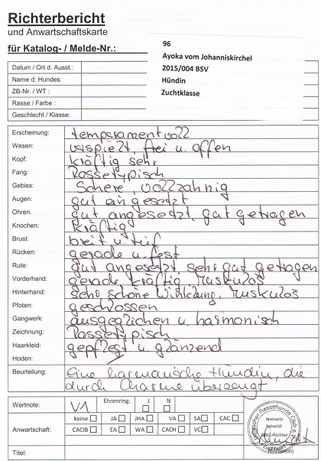 Richterbericht
und Anwartschaftskarte
für Katalog- / Melde-Nr.: 96
Ayoka vom Johanniskirchel
Datum / Ort d. Ausst.: 2015/004 BSV
Name d. Hundes: Hündin
ZB-Nr. / WT : Zuchtklasse
Rasse / Farbe :
Geschlecht / Klasse:
Erscheinung: temperamentvoll
Wesen: verspielt, frei u. offen
Kopf: kräftig sehr
Fang: Rassetypisch
Gebiss: Schere, vollzahnig
Augen: gut eingesetzt
Ohren. gut angesetzt, gut getragen
Knochen: kräftig
Brust: breit u. tief
Rücken: gerade u. fest
Rute: gut angesetzt, sehr gut getragen
Vorderhand: gerade, kräftig, Muskulös
Hinterhand: sehr schöne Winklung, Muskulös
Pfoten: geschlossen
Gangwerk: ausgeglichen u. harmonisch
Zeichnung: Rassetypisch
Haarkleid: gepflegt u. glänzend
Hoden:
Beurteilung: Eine harmonische Hündin, die
durch Charme überzeugt
Wertnote: V1 Ehrenring: J N
Anwartschaft: keine JA JHA VA SA CAC
CACIB EA WA CACH VC